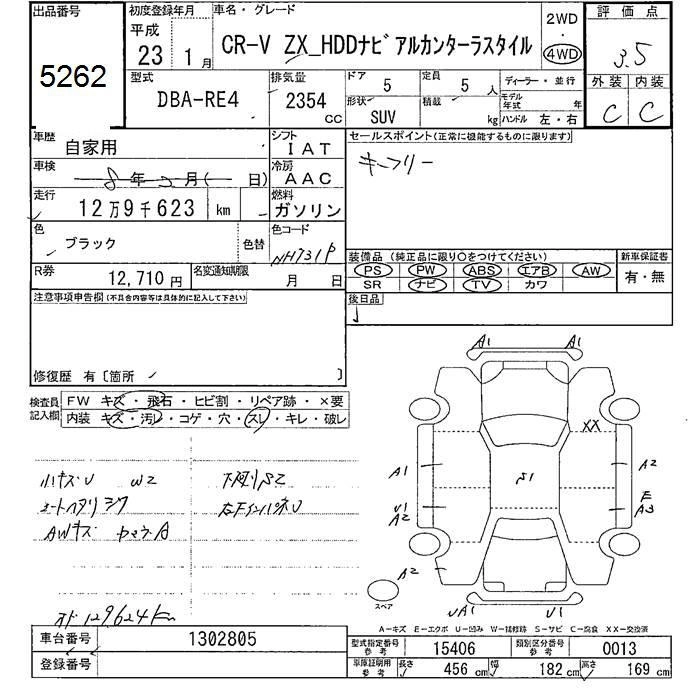 出品番号
5262
初度登録年月
平成
23 1月
車名・グレード
CR-V ZX_HDDナビアルカンターラスタイル
2WD
4WD
評価点
3.5
型式
DBA-RE4
排気量
2354 CC
ドア
5
定員
5 人
形状
SUV
積載
kg
ディーラー・並行
モデル年式 年
ハンドル 左・右
外装 内装
C C
車歴
自家用
シフト
I A T
車検
年 月( 日)
冷房
A A C
走行
12万9千623 km
燃料
ガソリン
色
ブラック
色替
色コード
NH731P
R券
12,710 円
名変通知期限
月 日
セールスポイント(正常に機能するものに限ります)
キーフリー
装備品 (純正品に限り○をつけてください)
PS PW ABS エアB AW
SR ナビ TV カワ
新車保証書
有・無
後日品
注意事項申告欄(不具合内容等は具体的に記入して下さい)
修復歴 有〔箇所 〕
検査員記入欄
FW キズ・飛石・ヒビ割・リペア跡・×要
内装 キズ・汚レ・コゲ・穴・スレ・キレ・破レ
小キズU W2
AWキズ
129624km
A1 A1
XX
A1
A2
S1
U1
A2
F
A3
A2
スペア
U1
A-キズ E-エクボ U-凹み W-補修跡 S-サビ C-腐食 XX-交換済
車台番号
1302805
登録番号
型式指定番号 参考
15406
類別区分番号 参考
0013
車庫証明用 参考
長さ 456 cm
幅 182 cm
高さ 169 cm